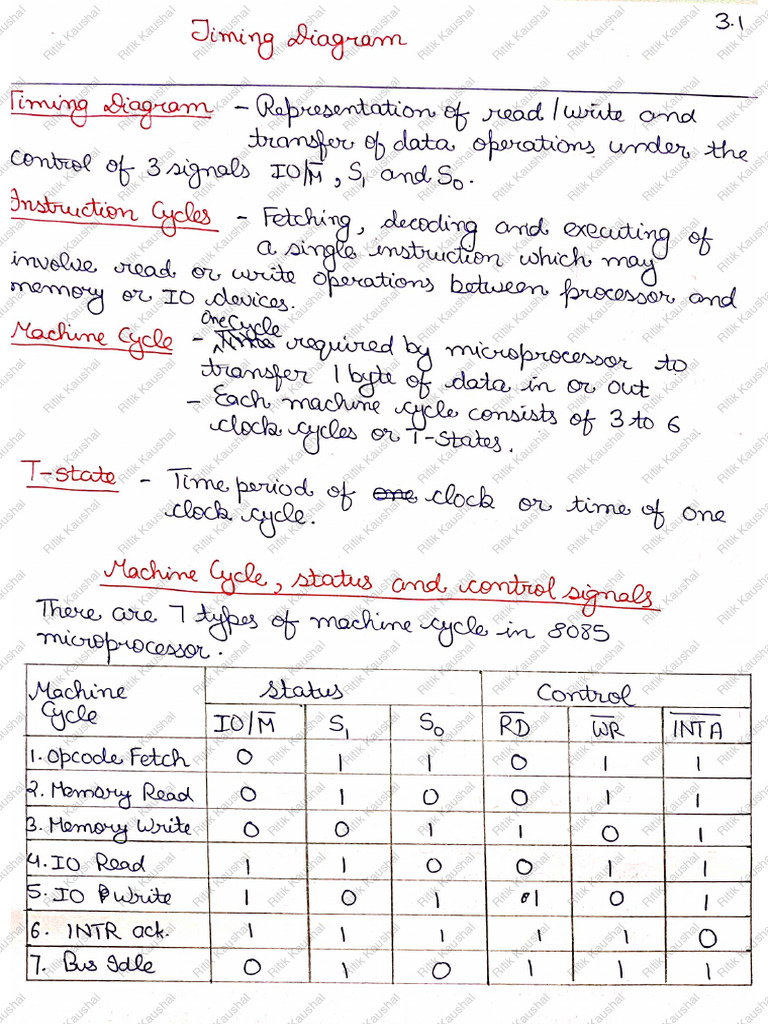 3.1
Timing Diagram
Timing Diagram - Representation of read/write and
transfer of data operations under the
control of 3 signals IO/M̅, S₁ and S₀.
Instruction Cycles - Fetching, decoding and executing of
a single instruction which may
involve read or write operations between processor and
memory or IO devices.
One Cycle
Machine Cycle - ~~Time~~ required by microprocessor to
transfer 1 byte of data in or out
- Each machine cycle consists of 3 to 6
clock cycles or T-states.
T-state - Time period of ~~one~~ clock or time of one
clock cycle.
Machine Cycle, status and control signals
There are 7 types of machine cycle in 8085
microprocessor.
Machine Cycle | Status | Control
IO/M̅ | S₁ | S₀ | R̅D̅ | W̅R̅ | I̅N̅T̅A̅
1. Opcode Fetch | 0 | 1 | 1 | 0 | 1 | 1
2. Memory Read | 0 | 1 | 0 | 0 | 1 | 1
3. Memory Write | 0 | 0 | 1 | 1 | 0 | 1
4. IO Read | 1 | 1 | 0 | 0 | 1 | 1
5. IO Write | 1 | 0 | 1 | 1 | 0 | 1
6. INTR ack. | 1 | 1 | 1 | 1 | 1 | 0
7. Bus Idle | 0 | 1 | 0 | 1 | 1 | 1
Ritik Kaushal